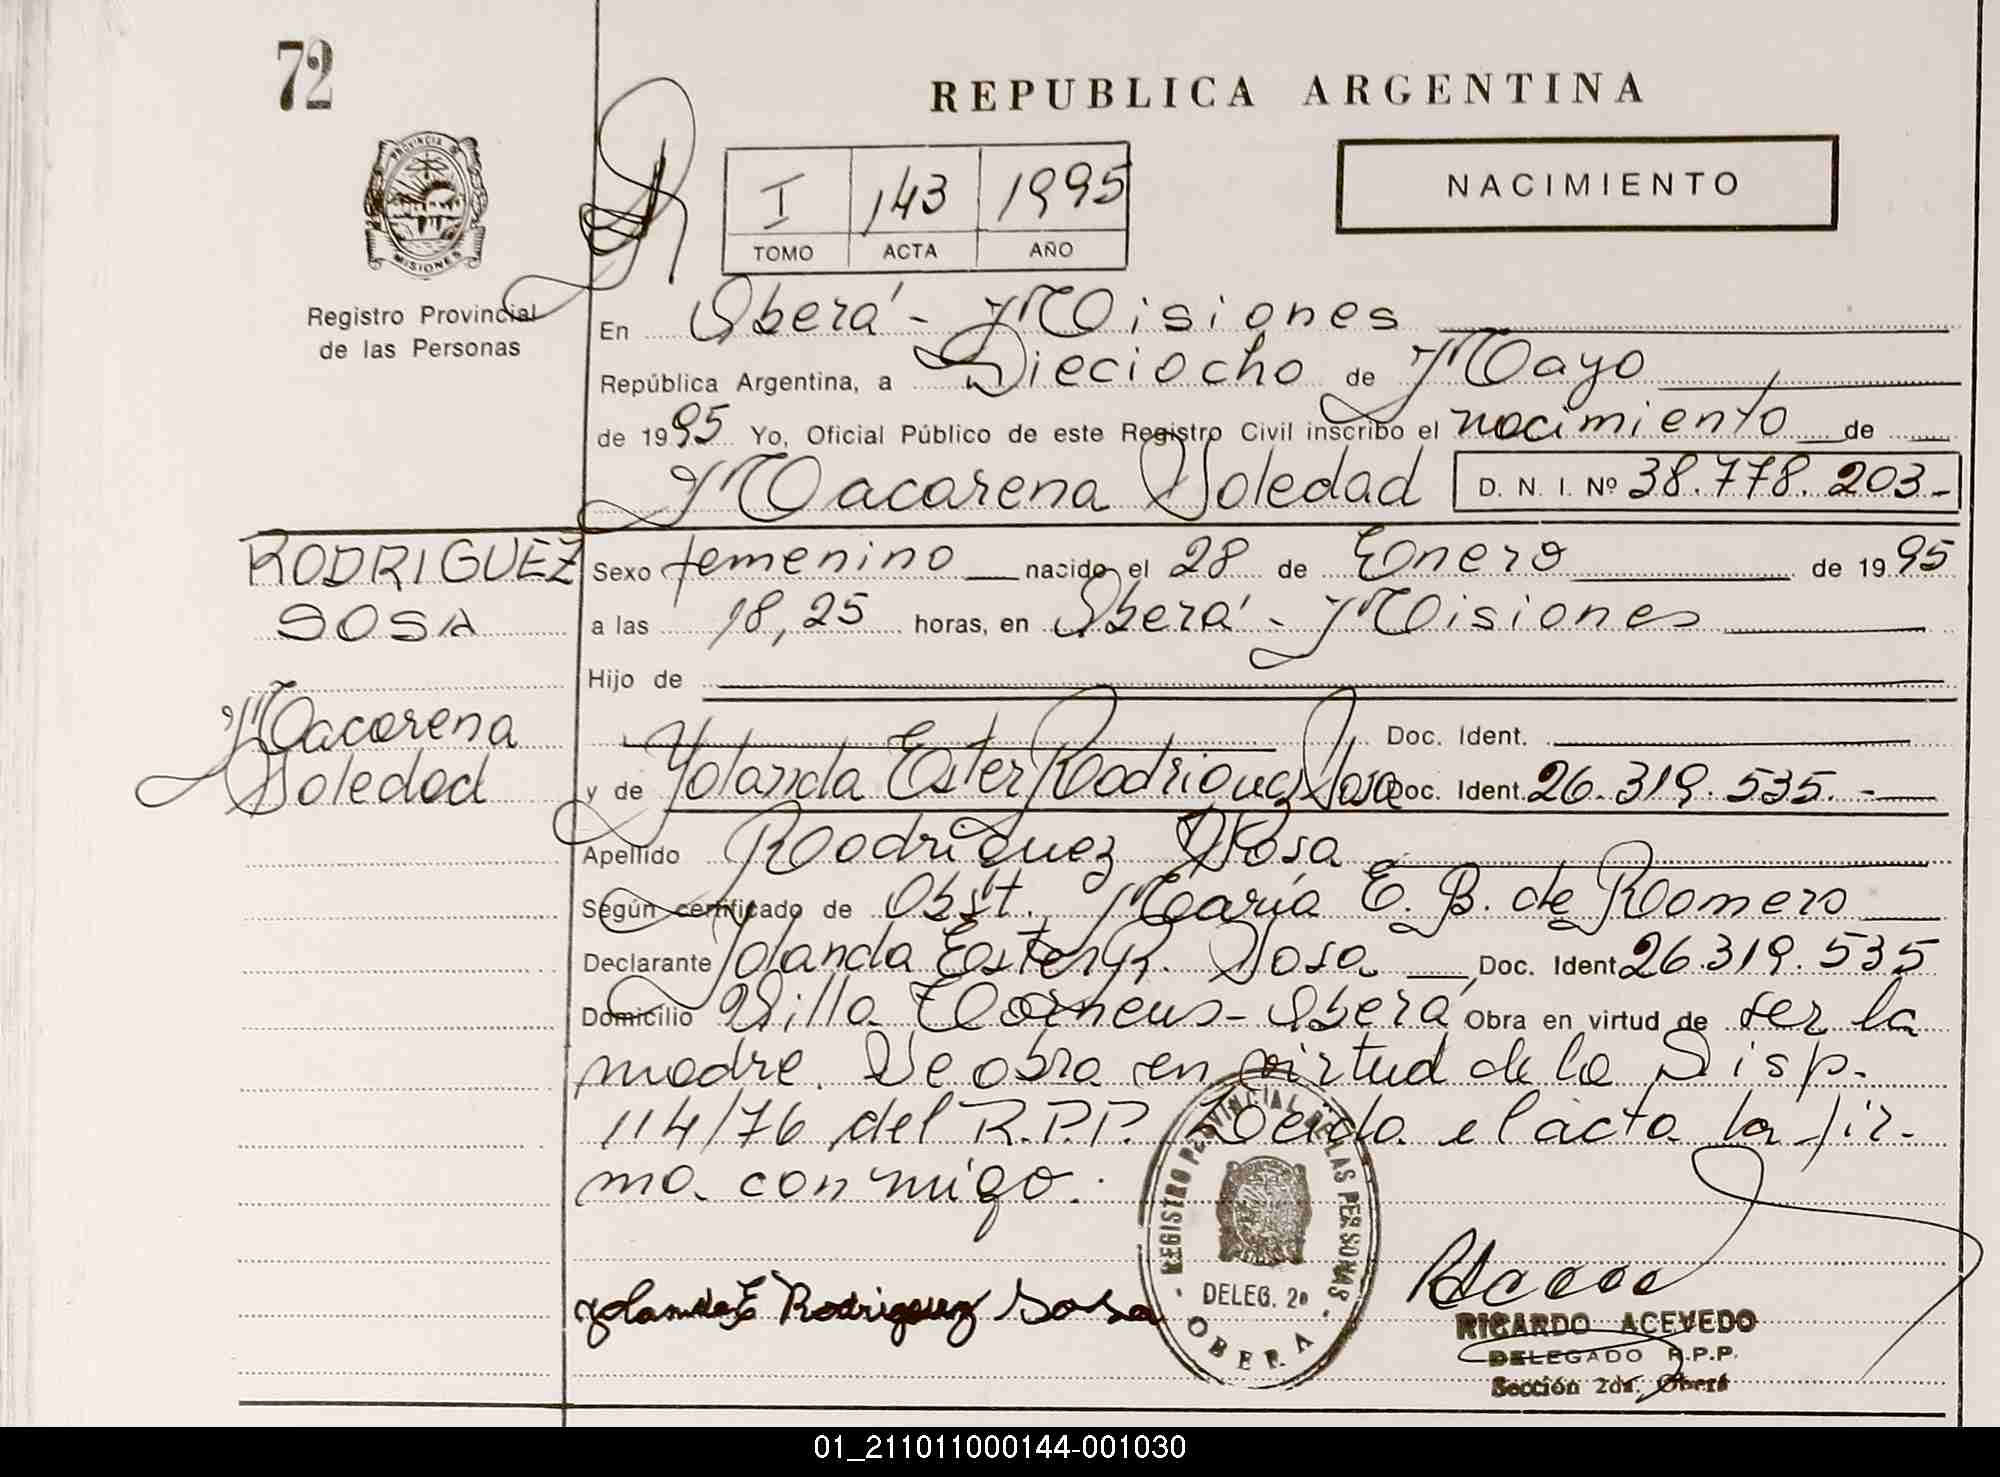 72
REPUBLICA ARGENTINA
PROVINCIA DE
MISIONES
I 143 1995
TOMO ACTA AÑO
NACIMIENTO
Registro Provincial
de las Personas
En Oberá - Misiones
República Argentina, a Dieciocho de Mayo
de 1995 Yo, Oficial Público de este Registro Civil inscribo el nacimiento de
Macarena Soledad D. N. I. Nº 38.778.203-
RODRIGUEZ
SOSA
Macarena
Soledad
Sexo femenino nacido el 28 de Enero de 1995
a las 18,25 horas, en Oberá - Misiones
Hijo de
Doc. Ident.
y de Yolanda Ester Rodriguez Sosa Doc. Ident. 26.319.535.-
Apellido Rodriguez Sosa
Según certificado de Obst. María E. B. de Romero
Declarante Yolanda Ester R. Sosa Doc. Ident. 26.319.535
Domicilio Villa - Oberá Obra en virtud de ser la
madre. Se obra en virtud de la Disp.
114/76 del R.P.P. Leída el acta la fir-
ma conmigo.
Yolanda E Rodriguez Sosa
REGISTRO PROVINCIAL DE LAS PERSONAS
DELEG. 2ª
OBERA
RICARDO ACEVEDO
DELEGADO R.P.P.
Sección 2da. Oberá
01_211011000144-001030